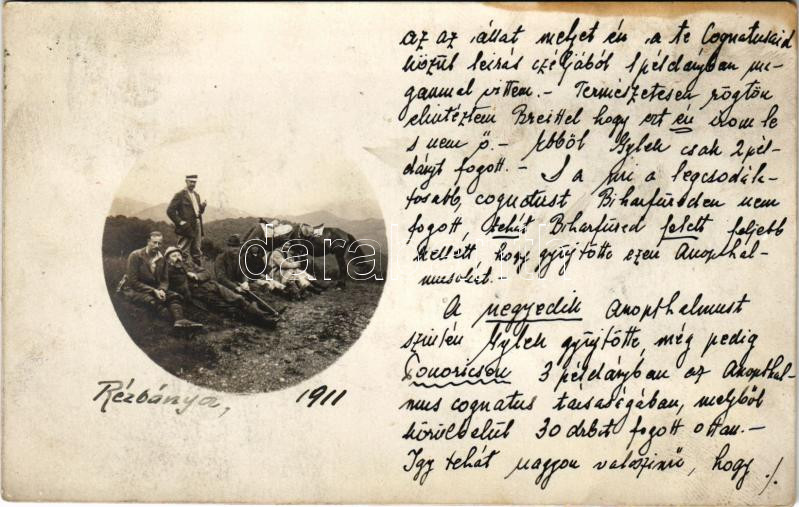 az az állat melyet én a te Cognatusaid
közül leirás czéljából 1 példányban ma-
gammal vittem. - Természetesen rögtön
elintéztem Breittel hogy ezt én irom le
s nem ő. - Ebből Gylek csak 2 pél-
dányt fogott. - S a mi a legcsodála-
tosabb, cognatust Biharfüreden nem
fogott, tehát Biharfüred felett feljebb
mellett hogy gyüjtötte ezen Anopthal-
musokat. -
A negyedik Anopthalmust
szintén Gylek gyüjtötte még pedig
3 példányban az Anopthal-
mus cognatus társaságában, melyből
körülbelül 30 drbot fogott ottan. -
Igy tehát nagyon valószinü, hogy ./.
Rézbánya, 1911
darabanth